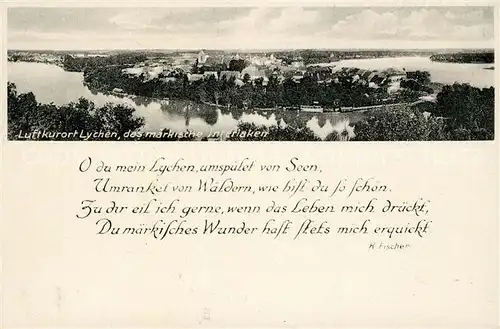 Luftkurort Lychen, das märkische Interlaken
O du mein Lychen, umspület von Seen,
Umranket von Wäldern, wie biſt du ſo ſchön.
Zu dir eil ich gerne, wenn das Leben mich drückt,
Du märkiſches Wunder haſt ſtets mich erquickt
K. Fischer